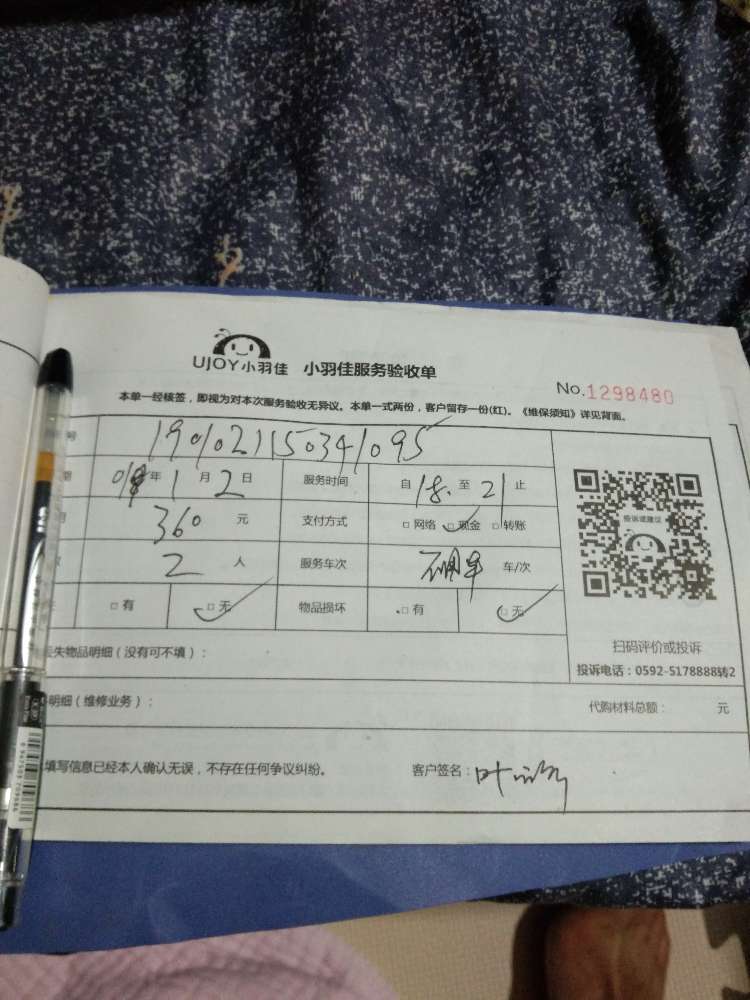 UJOY小羽佳 小羽佳服务验收单
No.1298480
本单一经核签，即视为对本次服务验收无异议。本单一式两份，客户留存一份(红)。《维保须知》详见背面。
号 1901021150341095
期 019年1月2日 服务时间 自18.至21止
360元 支付方式 □网络 □现金 □转账
2人 服务车次 车/次
□有 □无 物品损坏 □有 □无
投诉或建议
扫码评价或投诉
投诉电话：0592-5178888转2
失物品明细（没有可不填）：
明细（维修业务）： 代购材料总额： 元
填写信息已经本人确认无误，不存在任何争议纠纷。 客户签名：叶